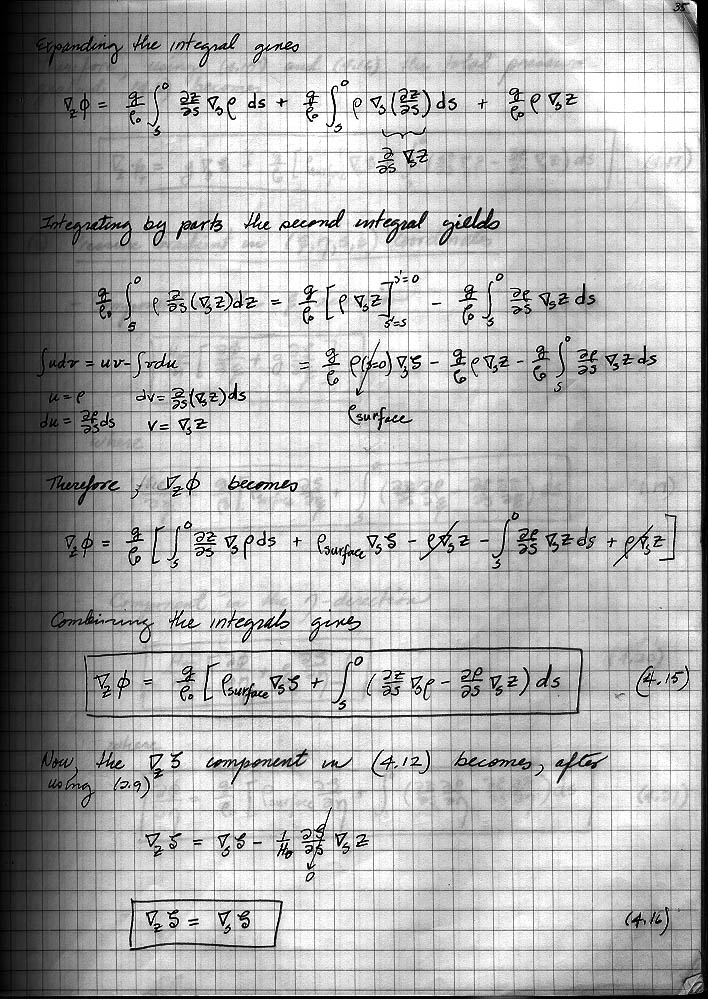 35
Expanding the integral gives
∇_z φ = g/ρ₀ ∫_s^0 ∂z/∂s ∇_s ρ ds + g/ρ₀ ∫_s^0 ρ ∇_s(∂z/∂s) ds + g/ρ₀ ρ ∇_s z
∂/∂s ∇_s z
Integrating by parts the second integral yields
g/ρ₀ ∫_s^0 ρ ∂/∂s (∇_s z) dz = g/ρ₀ [ρ ∇_s z]_{s'=s}^{s'=0} − g/ρ₀ ∫_s^0 ∂ρ/∂s ∇_s z ds
∫udv = uv − ∫vdu = g/ρ₀ ρ(s=0) ∇_s ζ − g/ρ₀ ρ ∇_s z − g/ρ₀ ∫_s^0 ∂ρ/∂s ∇_s z ds
u = ρ dv = ∂/∂s (∇_s z) ds ρ_surface
du = ∂ρ/∂s ds v = ∇_s z
Therefore, ∇_z φ becomes
∇_z φ = g/ρ₀ [∫_s^0 ∂z/∂s ∇_s ρ ds + ρ_surface ∇_s ζ − ρ∇_s z − ∫_s^0 ∂ρ/∂s ∇_s z ds + ρ∇_s z]
Combining the integrals gives
∇_z φ = g/ρ₀ [ρ_surface ∇_s ζ + ∫_s^0 (∂z/∂s ∇_s ρ − ∂ρ/∂s ∇_s z) ds (4.15)
Now, the ∇_z ζ component in (4.12) becomes, after
using (2.9)
∇_z ζ = ∇_s ζ − 1/H₀ ∂ζ/∂s ∇_s z
0
∇_z ζ = ∇_s ζ (4.16)